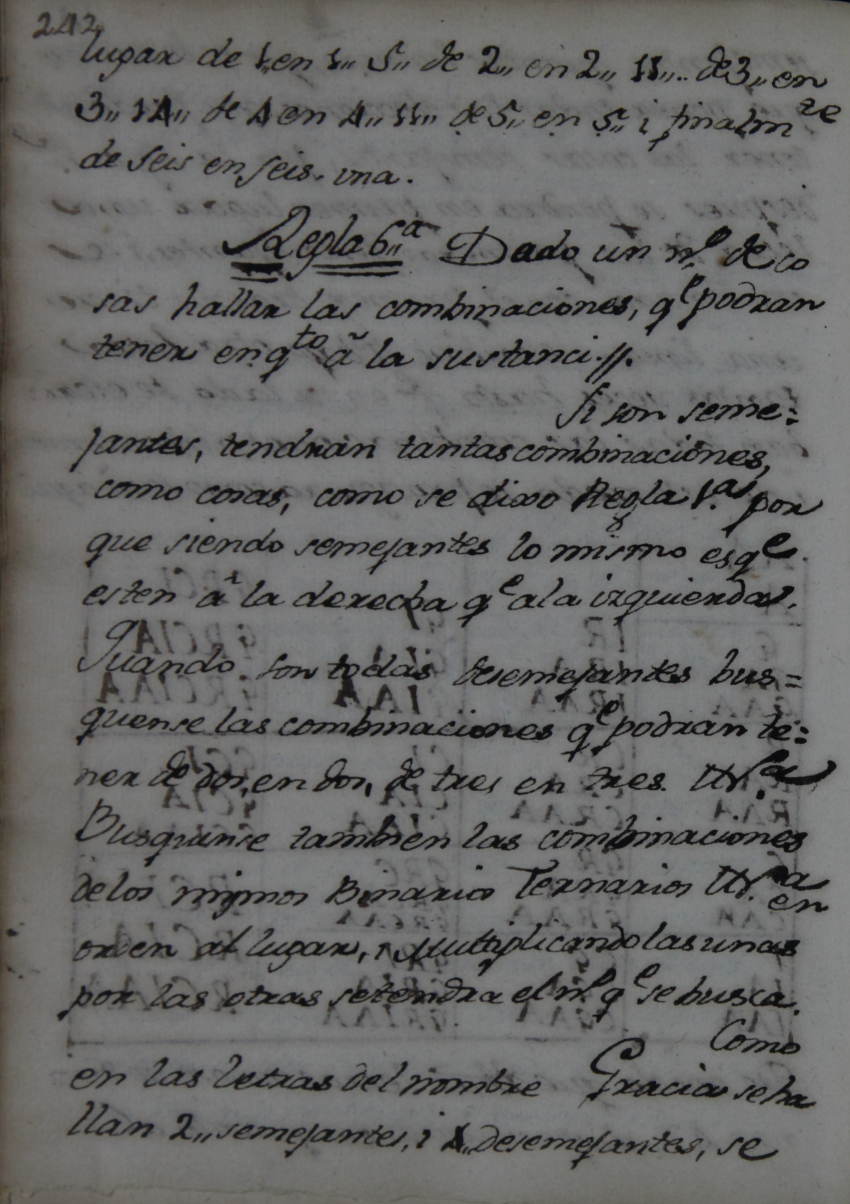 242
lugar de 1 en 1,, 5,, de 2,, en 2,, 11,, de 3,, en
3,, 14,, de 4 en 4,, 11,, de 5,, en 5,, i finalmte
de seis en seis. una.
Regla 6,,a Dado un no. de co
sas hallar las combinaciones, qe podran
tener en qto â la sustanci.//.
Si son seme=
jantes, tendran tantas combinaciones,
como cosas, como se dixo Regla 1.a por
que siendo semejantes lo mismo es qe
esten â la derecha qe a la izquierda.
Quando son todas desemejantes bus=
quense las combinaciones qe podran te=
ner de dos, en dos, de tres en tres.
Busquense tambien las combinaciones
de los mismos Binarios Ternarios en
orden al lugar, i Multiplicando las unas
por las otras se tendra el no. qe se busca.
Como
en las letras del nombre Gracia se ha
llan 2,, semejantes, i 4,, desemejantes, se